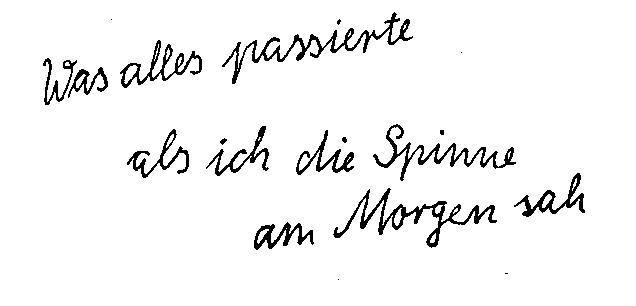 Was alles passierte
als ich die Spinne
am Morgen sah